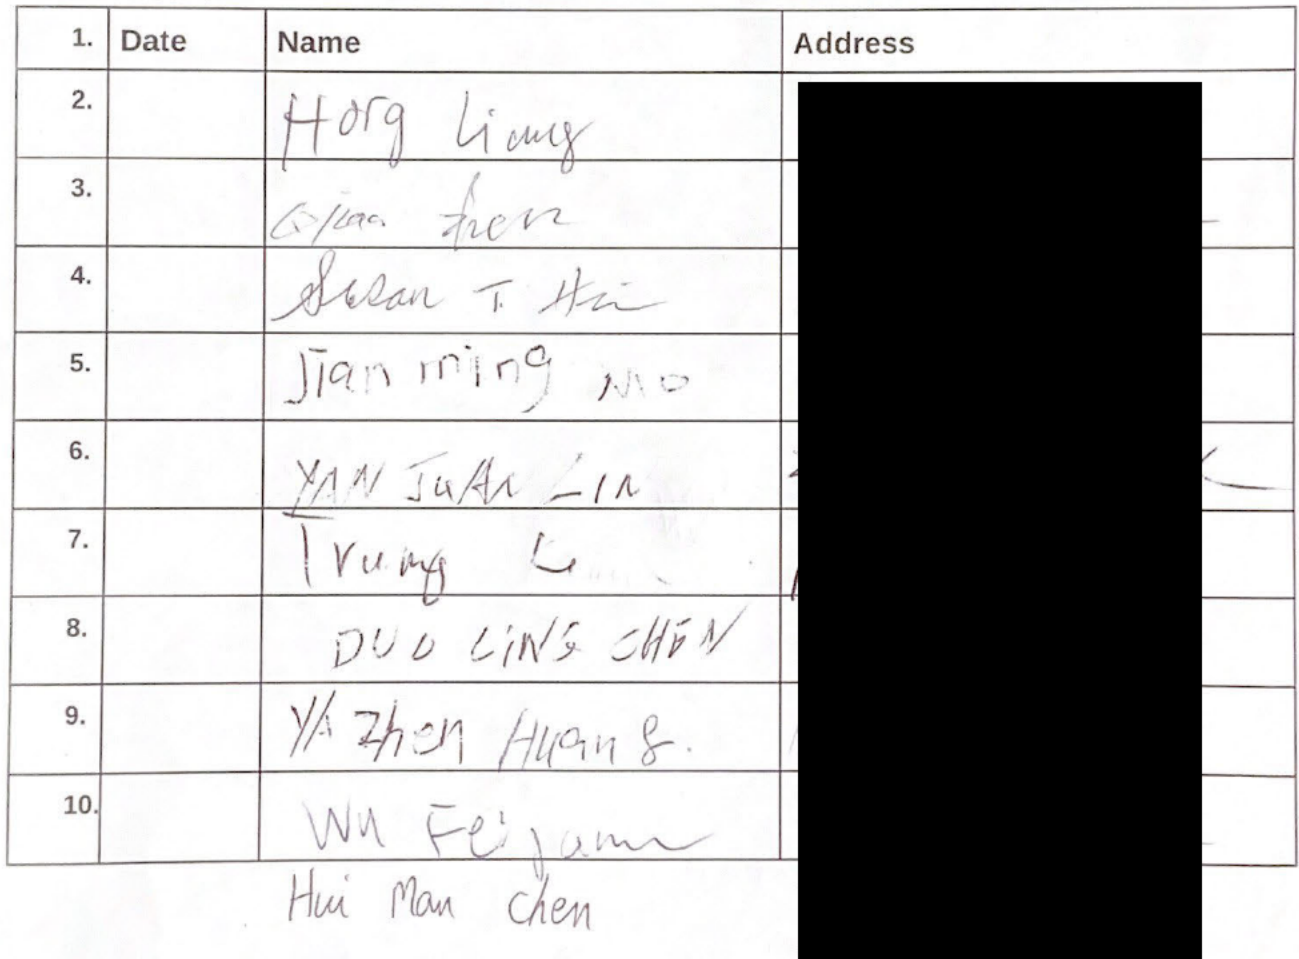 1. Date Name Address
2. Hong Liang
3. Zhen
4. Susan T.
5. Jian ming Mo
6. YAN JUAN LIN
7. Trung
8. DUO LING CHEN
9. YA Zhen Huang.
10. Wu
Hui Man Chen